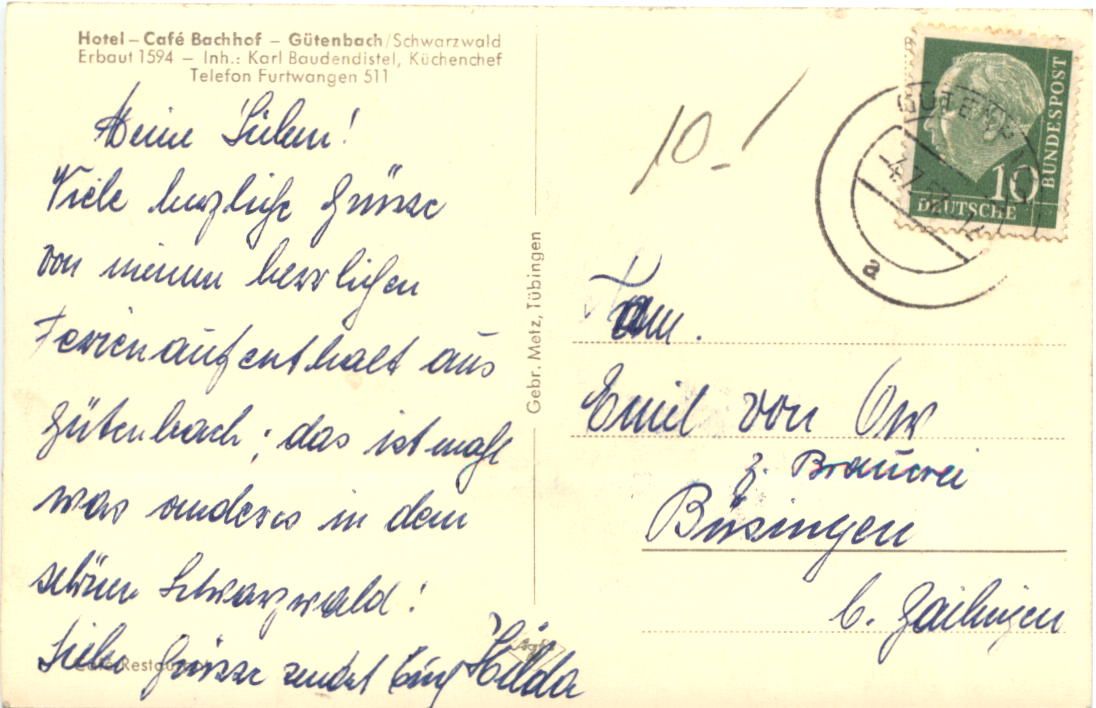 Hotel – Café Bachhof – Gütenbach/Schwarzwald
Erbaut 1594 – Inh.: Karl Baudendistel, Küchenchef
Telefon Furtwangen 511
Meine Lieben!
Viele herzliche Grüsse
von meinem herrlichen
Ferienaufenthalt aus
Gütenbach; das ist mahl
was anderes in dem
schönen Schwarzwald!
Liebe Grüsse sendet Euch Hilda
Gebr. Metz, Tübingen
10.-
GÜTENB
4.7.
a
10
DEUTSCHE
BUNDESPOST
Fam.
Emil von Ow
z. Brauerei
Büsingen
b.